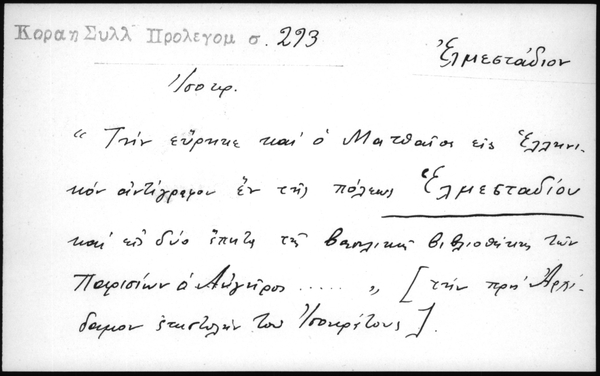 Κοραη Συλλ Προλεγομ σ. 293
Ἑλμεστάδιον
Ἰσοκρ.
“ Τὴν εὕρηκε καὶ ὁ Ματθαῖος εἰς Ἑλληνι-
κὸν ἀντίγραφον ἓν τῆς πόλεως Ἑλμεσταδίου
καὶ εἰς δύο τῆς βασιλικῆς βιβλιοθήκης τῶν
Παρισίων ὁ Αὐγῆρος ..... „ [ τὴν πρὸς Ἀρχί-
δαμον ἐπιστολὴν τοῦ Ἰσοκράτους ].